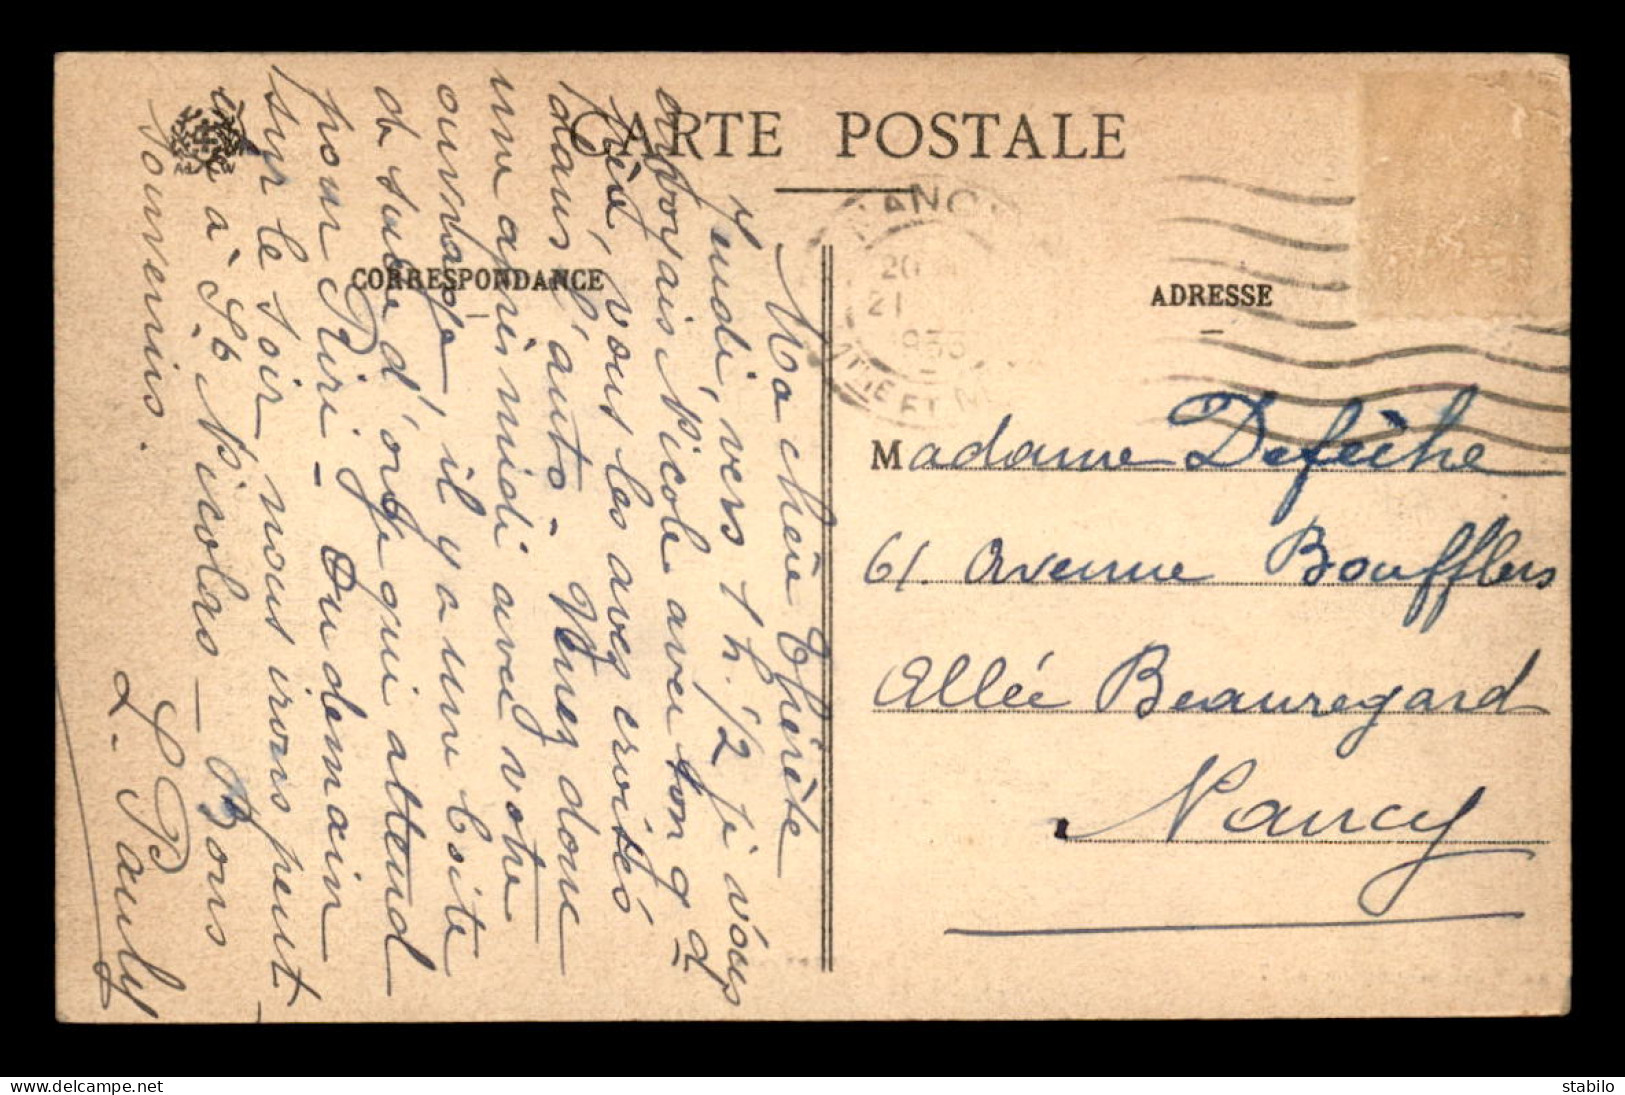 CARTE POSTALE
CORRESPONDANCE
ADRESSE
Ma chère Thérète
Jeudi, vers 1 h. 1/2 je vous
envoyais Nicole avec ton gd
père, vous les avez croisés
dans l'auto - Venez donc
une après midi avec votre
ouvrage, il y a une boite
de sucre d'orge qui attend
pour Riri - Ou demain
sur le soir, nous irons peut-
à St Nicolas - Bons
Souvenirs.
L. Pauly
NANCY
20
21
933
Madame Defèche
61. Avenue Boufflers
Allée Beauregard
Nancy
delcampe.net
stabilo